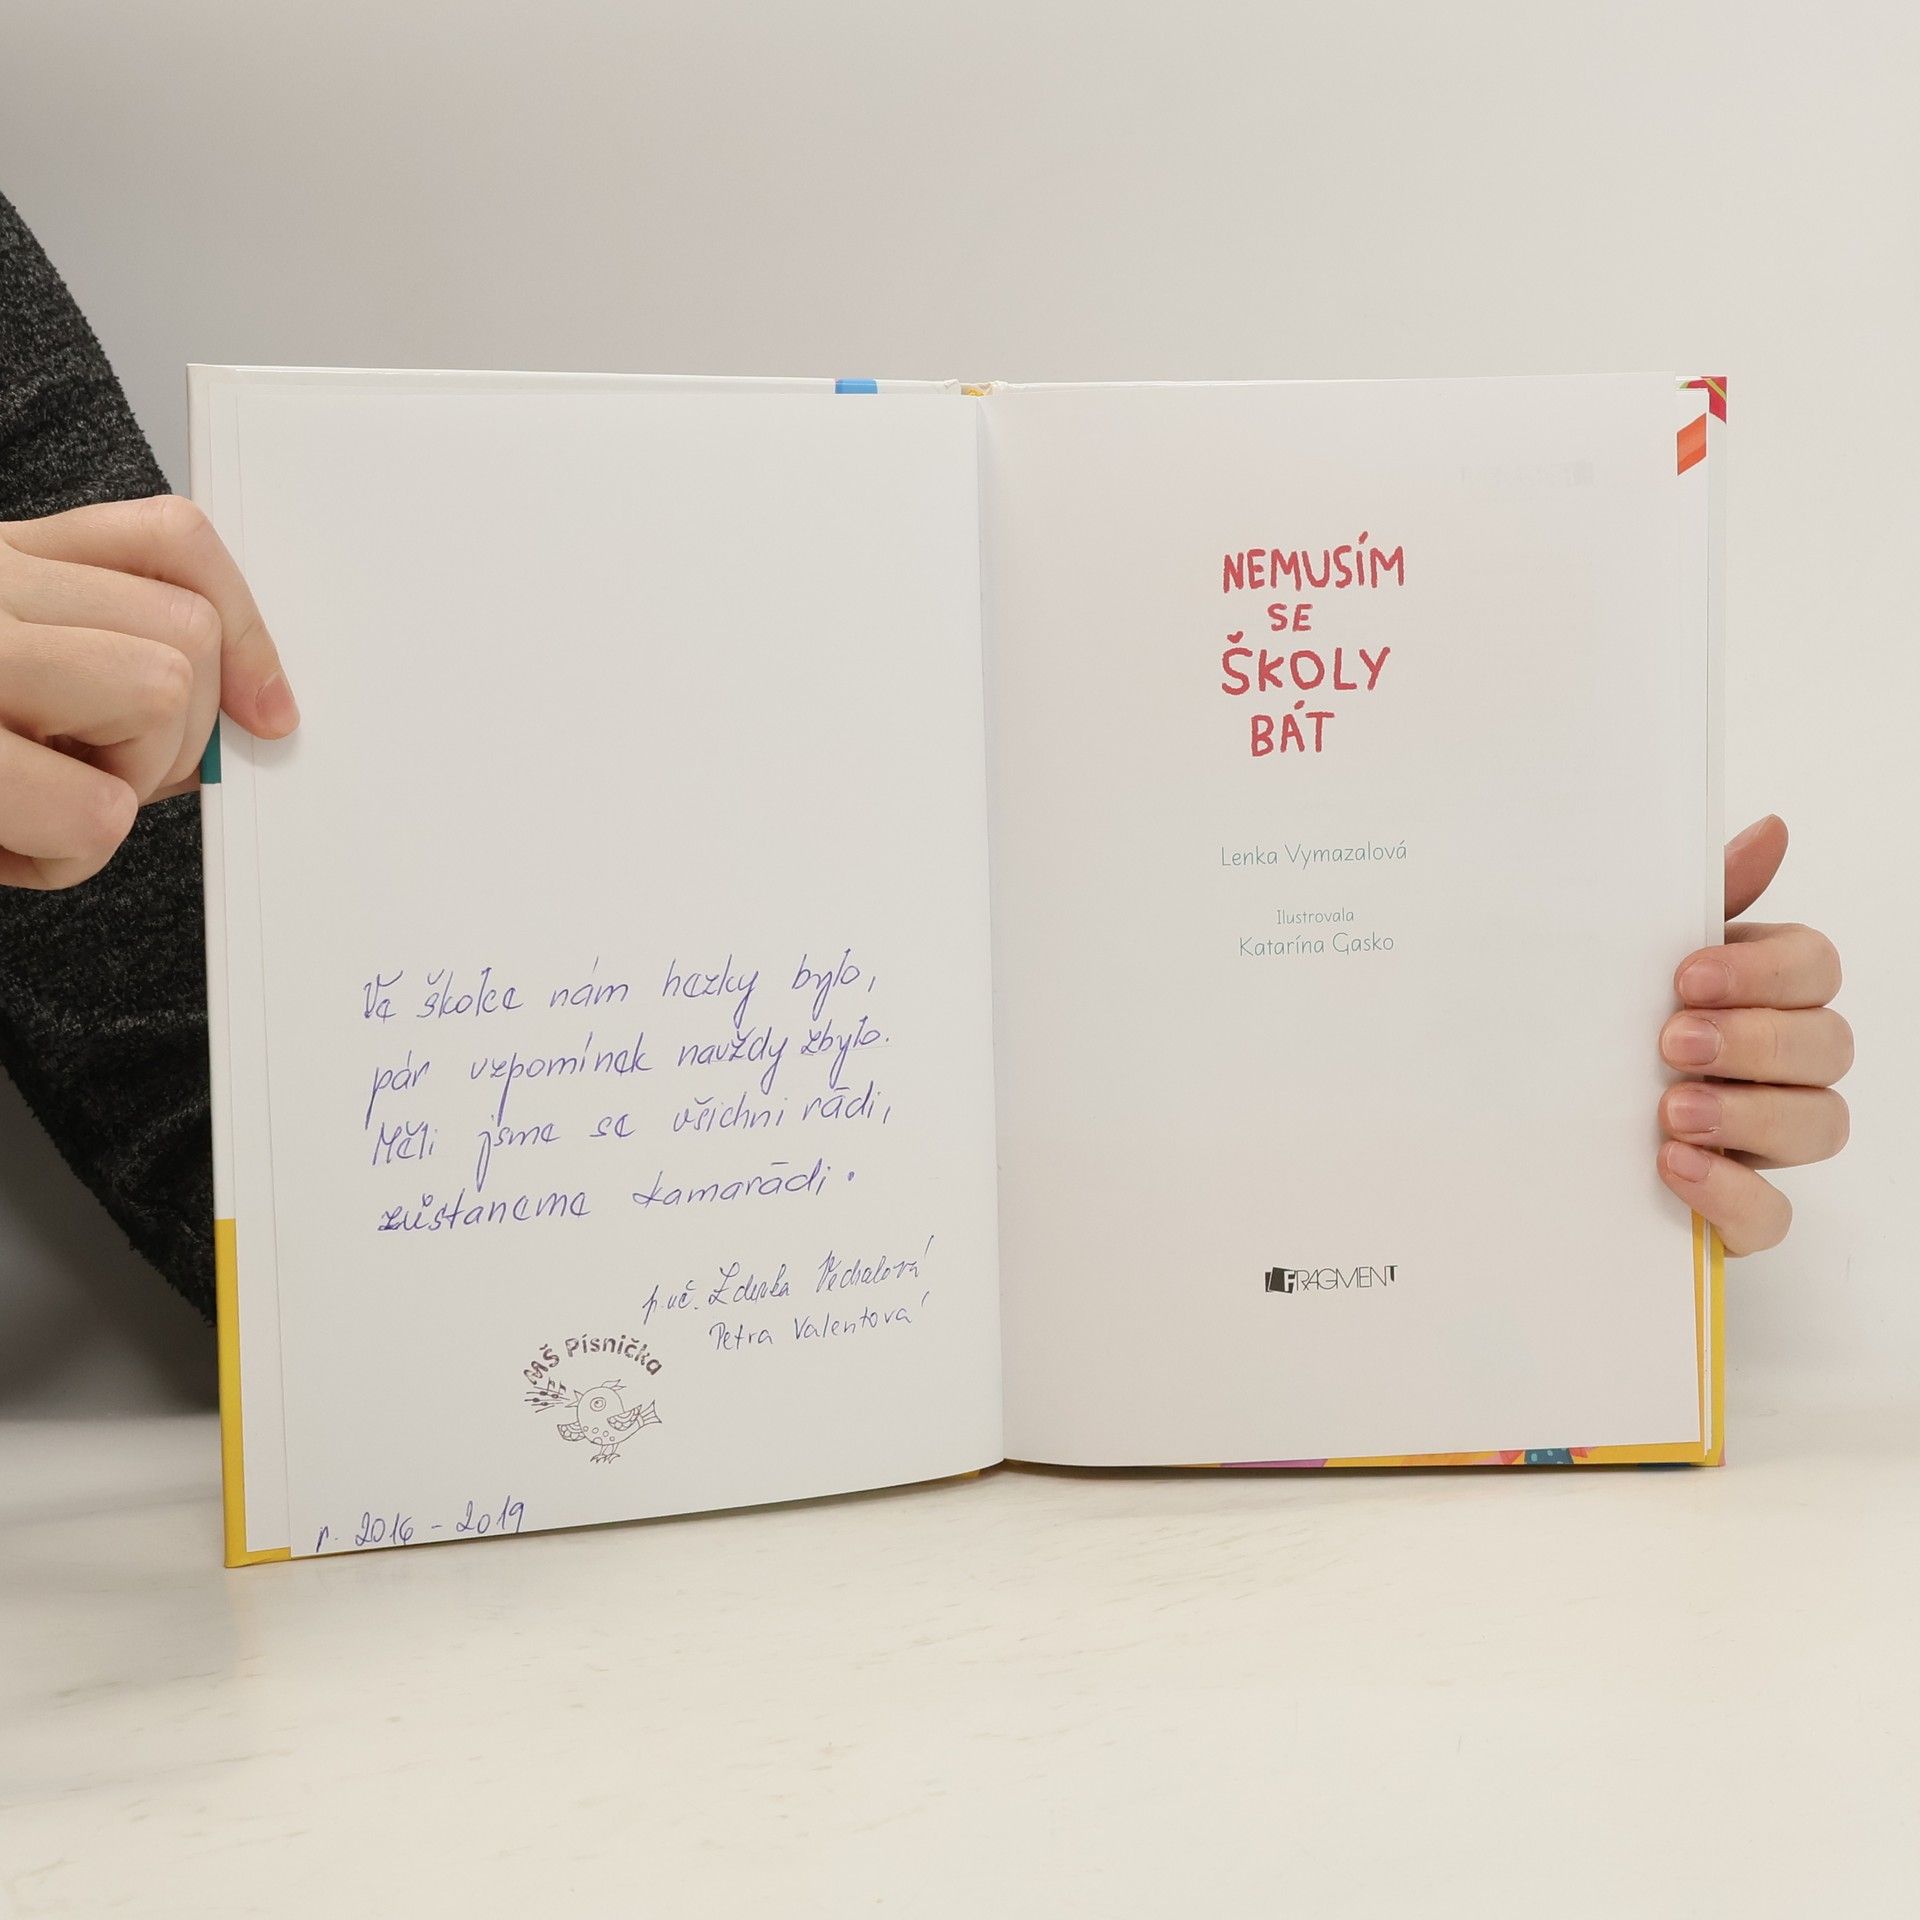 Ve školce nám hezky bylo,
pár vzpomínek navždy zbylo.
Měli jsme se všichni rádi,
zůstaneme kamarádi.
p. uč. Zdenka
Petra Valentová
MŠ Písnička
r. 2016 - 2019
NEMUSÍM
SE
ŠKOLY
BÁT
Lenka Vymazalová
Ilustrovala
Katarína Gasko
FRAGMENT